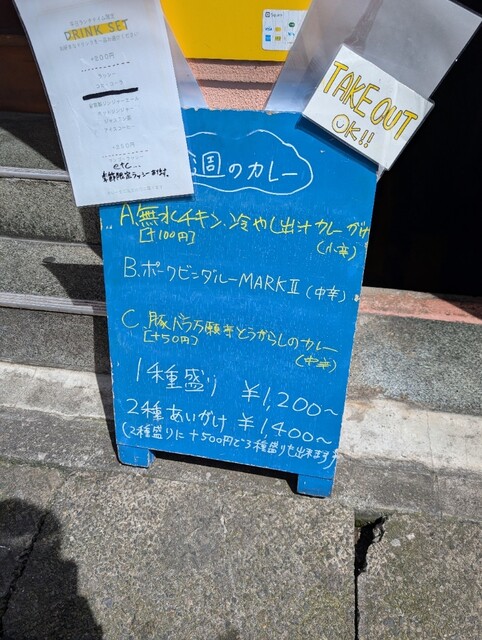 DRINK SET
+200円
ラッシー
アイスコーヒー
+250円
季節限定ラッシーあります。
TAKE OUT
OK!!
週のカレー
A.無水チキン冷やし出汁カレーがけ
[+100円]
(小辛)
B.ポークビンダルーMARKⅡ(中辛)
C.豚バラ万願寺とうがらしのカレー
[+50円]
(中辛)
1種盛り ¥1,200~
2種あいがけ ¥1400~
(2種盛りに+500円で3種盛りも出来ます)